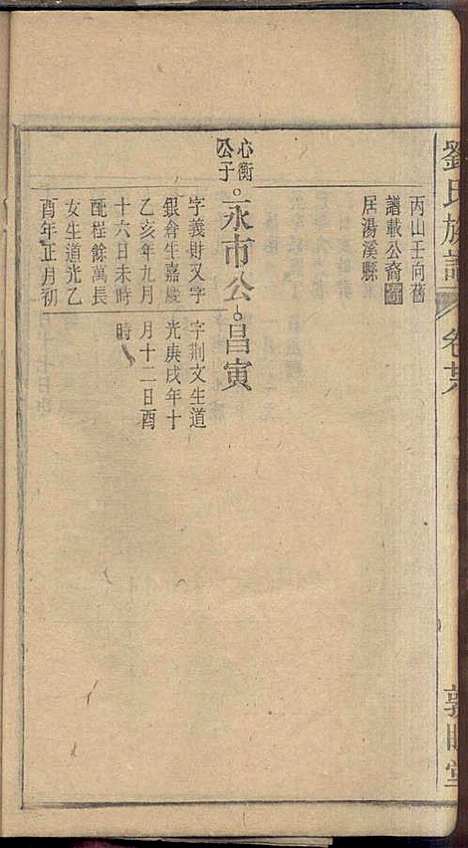 劉氏族譜
卷廿八
敦睦堂
丙山壬向舊
譜載公裔
居湯溪縣
心衡
公子
永市公
昌寅
字義財又字
銀倉生嘉慶
乙亥年九月
十六日未時
配桂餘萬長
女生道光乙
酉年正月初
字荆文生道
光庚戌年十
月十二日酉
時